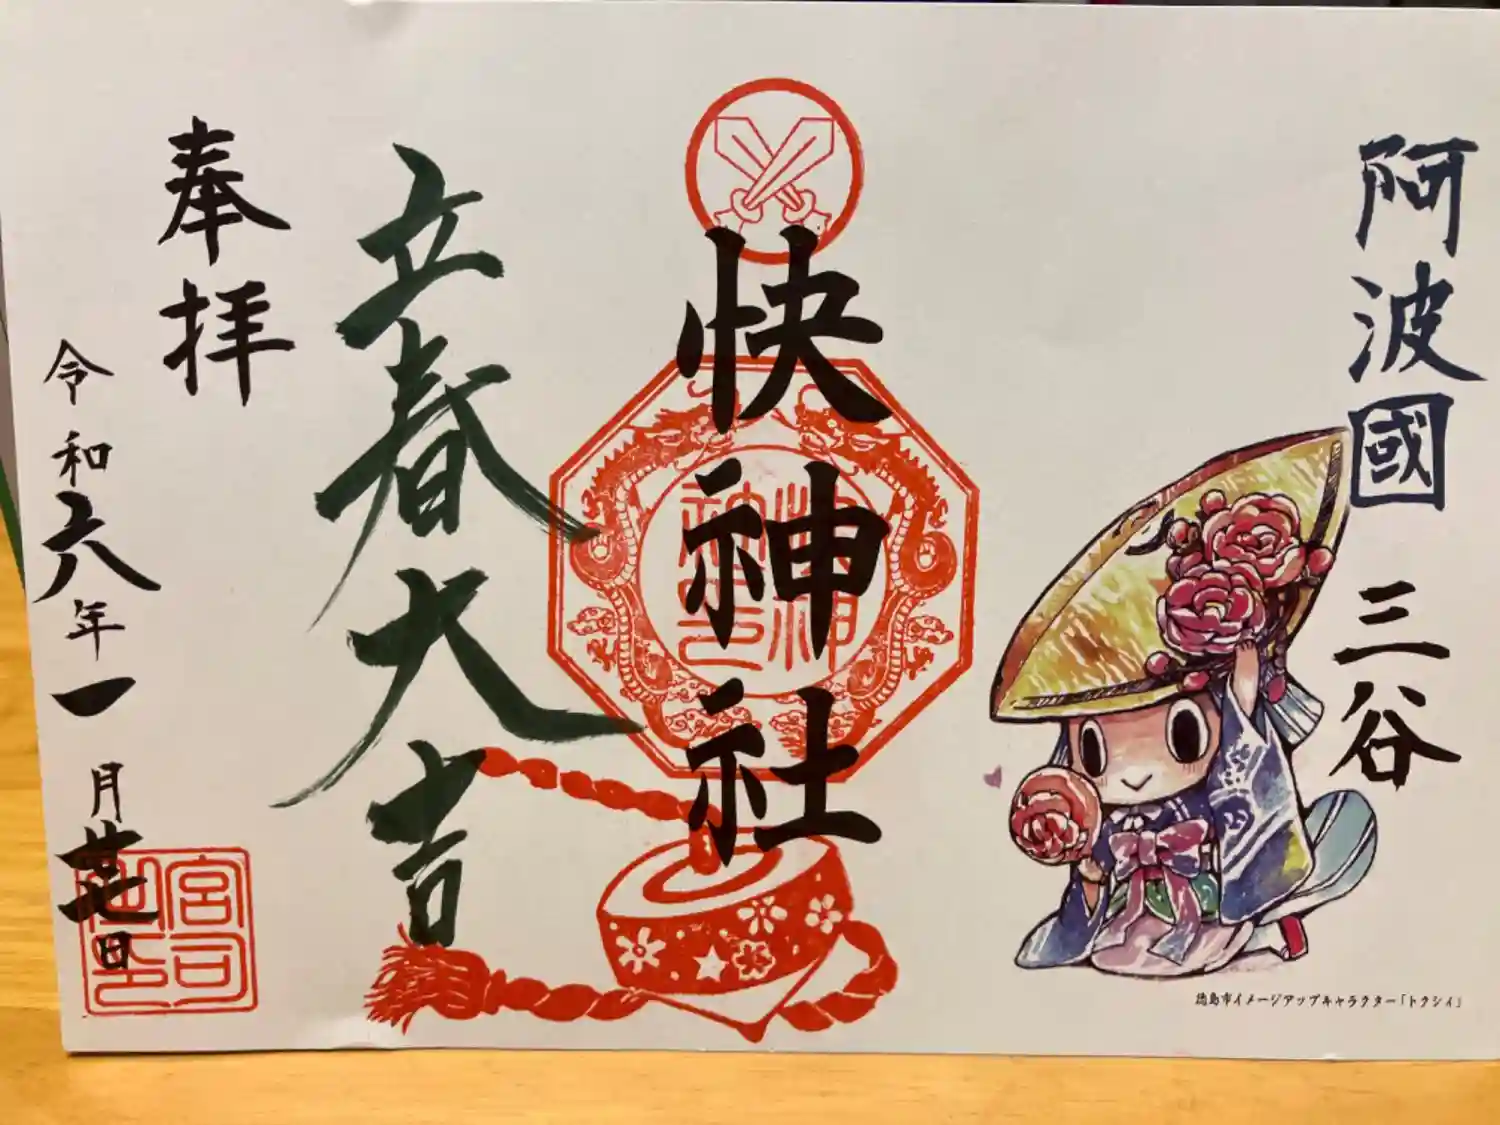 阿波國 三谷
快神社
立春大吉
奉拝
令和六年一月廿七日
快神社神社之印
宮司之印
徳島市イメージアップキャラクター「トクシィ」